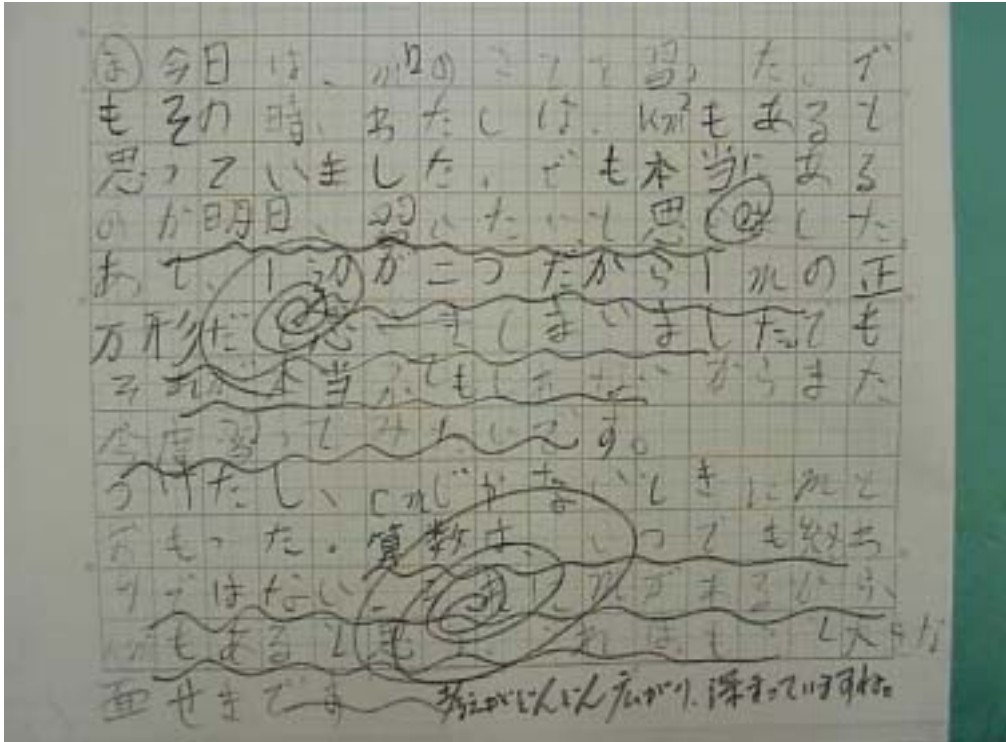 ま 今日は、m²のことを習った。で
もその時、わたしは、km²もあると
思っていました。でも本当にある
のか明日、習いたいと思いました
あて、1 がニつだから1mの正
方形だと思ってしまいましたでも
それが本当 でもしれないからまた
今度習ってみたいです。
つけたし、cmじゃないときにmと
おもった。算数は、いつでも終わ
りではない。 m²があるから、
km²もあると それはもっと大きな
面せきです
考えがどんどん広がり、深まっていますね。